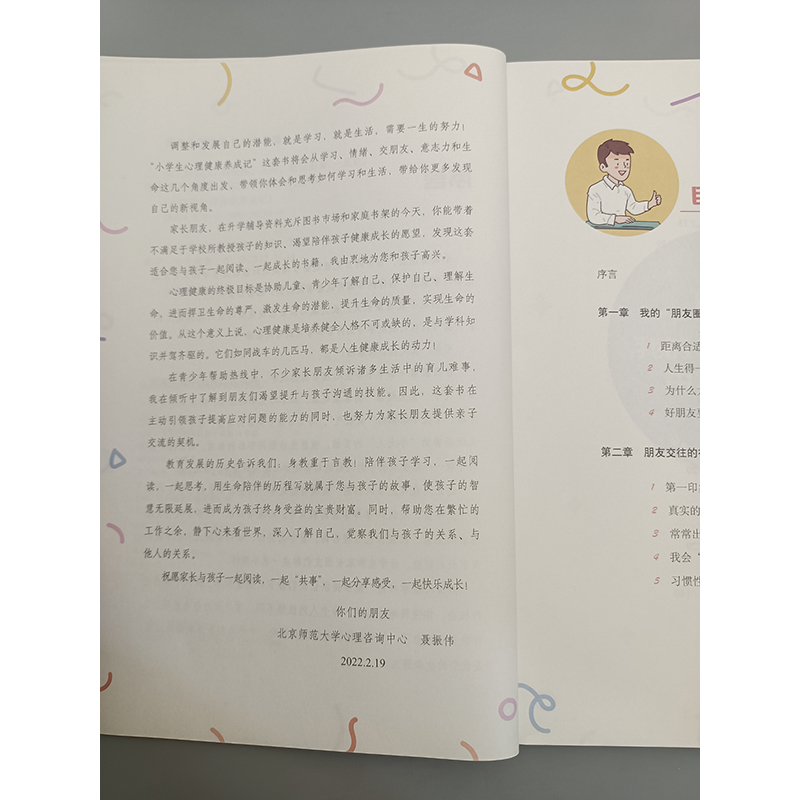 调整和发展自己的潜能，就是学习，就是生活，需要一生的努力！
“小学生心理健康养成记”这套书将会从学习、情绪、交朋友、意志力和生
命这几个角度出发，带领你体会和思考如何学习和生活，带给你更多发现
自己的新视角。
家长朋友，在升学辅导资料充斥图书市场和家庭书架的今天，你能带着
不满足于学校所教授孩子的知识、渴望陪伴孩子健康成长的愿望，发现这套
适合您与孩子一起阅读、一起成长的书籍，我由衷地为您和孩子高兴。
心理健康的终极目标是协助儿童、青少年了解自己、保护自己、理解生
命，进而捍卫生命的尊严，激发生命的潜能，提升生命的质量，实现生命的
价值。从这个意义上说，心理健康是培养健全人格不可或缺的，是与学科知
识并驾齐驱的。它们如同战车的几匹马，都是人生健康成长的动力！
在青少年帮助热线中，不少家长朋友倾诉诸多生活中的育儿难事，
我在倾听中了解到朋友们渴望提升与孩子沟通的技能。因此，这套书在
主动引领孩子提高应对问题的能力的同时，也努力为家长朋友提供亲子
交流的契机。
教育发展的历史告诉我们，身教重于言教！陪伴孩子学习，一起阅
读，一起思考，用生命陪伴的历程写就属于您与孩子的故事，使孩子的智
慧无限延展，进而成为孩子终身受益的宝贵财富。同时，帮助您在繁忙的
工作之余，静下心来看世界，深入了解自己，觉察我们与孩子的关系、与
他人的关系。
祝愿家长与孩子一起阅读，一起“共事”，一起分享感受，一起快乐成长！
你们的朋友
北京师范大学心理咨询中心 聂振伟
2022.2.19
序言
第一章 我的“朋友圈
1 距离合适
2 人生得一
3 为什么
4 好朋友
第二章 朋友交往的
1 第一印
2 真实的
3 常常出
4 我会“
5 习惯性